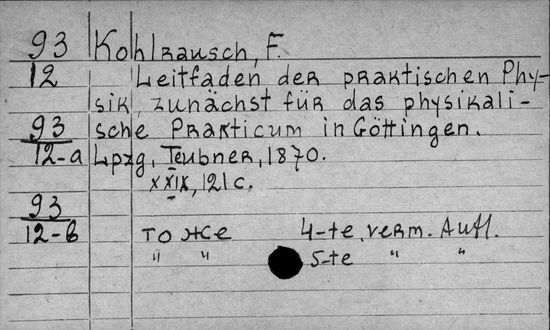 93 Kohlrausch, F.
12 Leitfaden der praktischen Phy-
sik, zunächst für das physikali-
93 sche Prakticum in Göttingen.
12-a Lpzg, Teubner, 1870.
XXIX, 121 c.
93
12-б то же 4-te, verm. Aufl.
" " 5-te " "